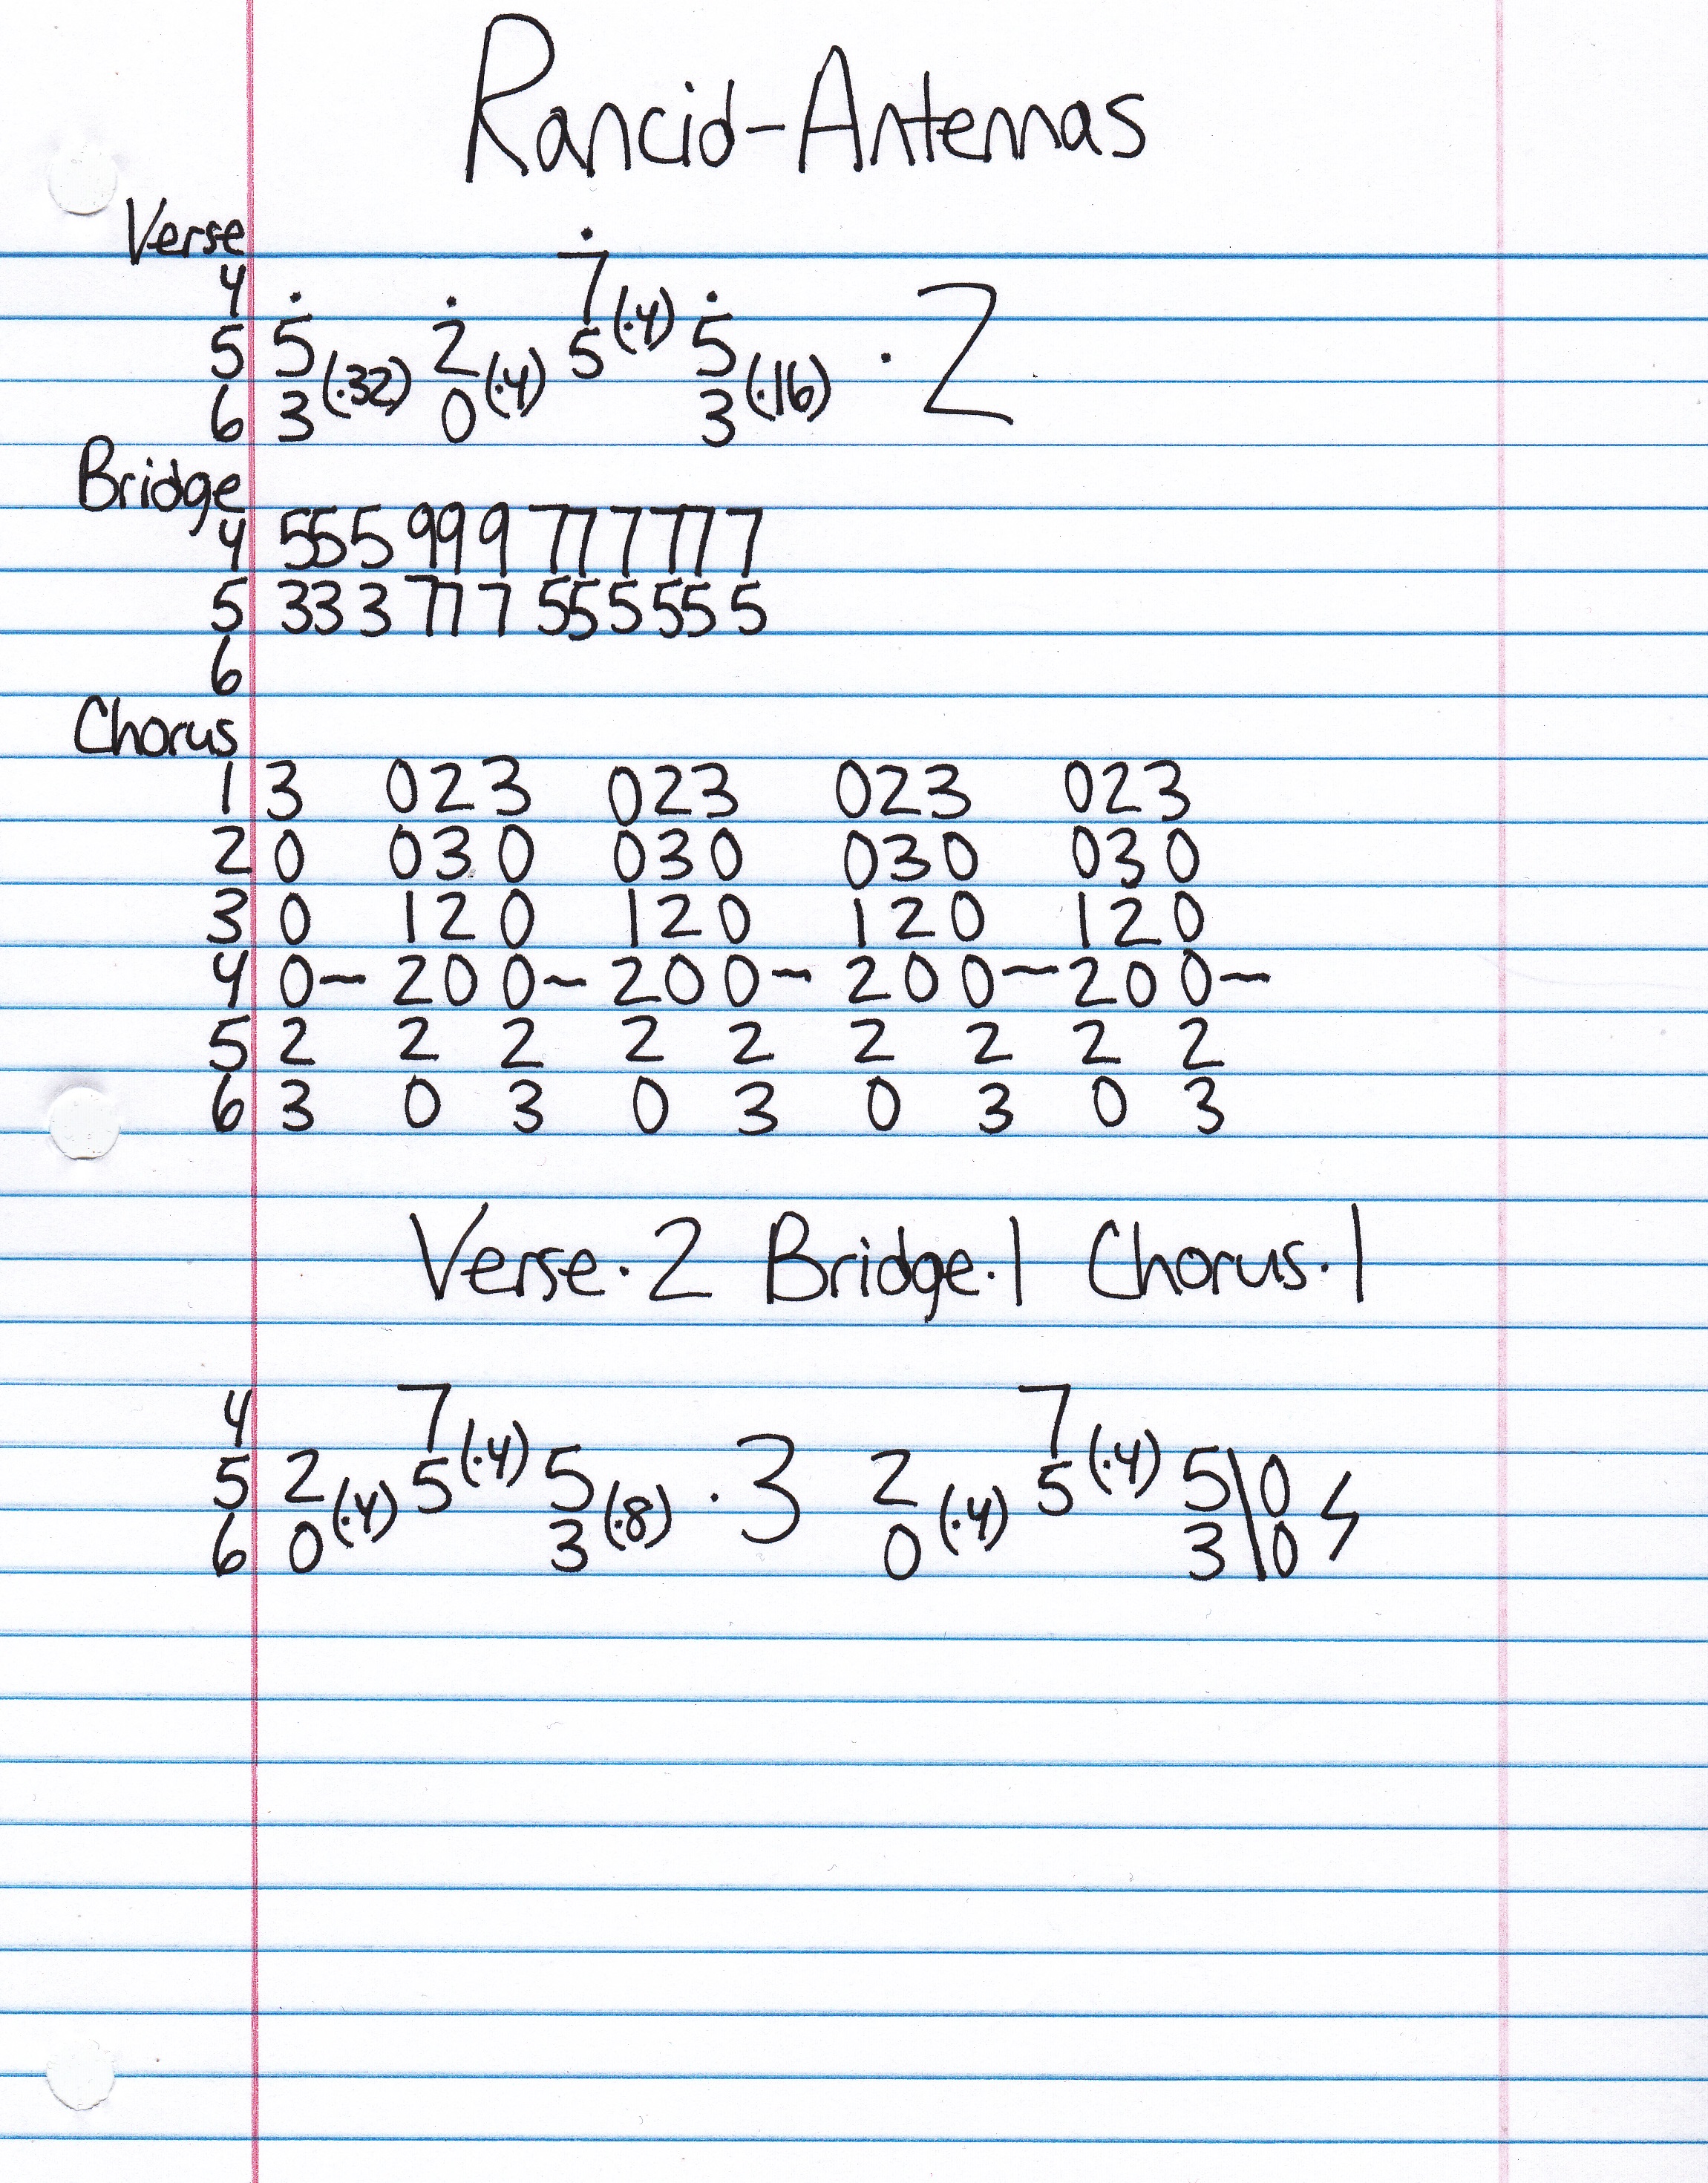 Rancid-Antennas
Verse
4 7(·4)
5 5 2 5 5 · 2
6 3(·32) 0(·4) 3(·16)
Bridge
4 555 999 777777
5 333 777 555555
6
Chorus
1 3 023 023 023 023
2 0 030 030 030 030
3 0 120 120 120 120
4 0~ 200~ 200~ 200~ 200~
5 2 2 2 2 2 2 2 2 2
6 3 0 3 0 3 0 3 0 3
Verse·2 Bridge·1 Chorus·1
4 7 7
5 2 5(·4) 5 · 3 2 5(·4) 5\0
6 0(·4) 3(·8) 0(·4) 3\0